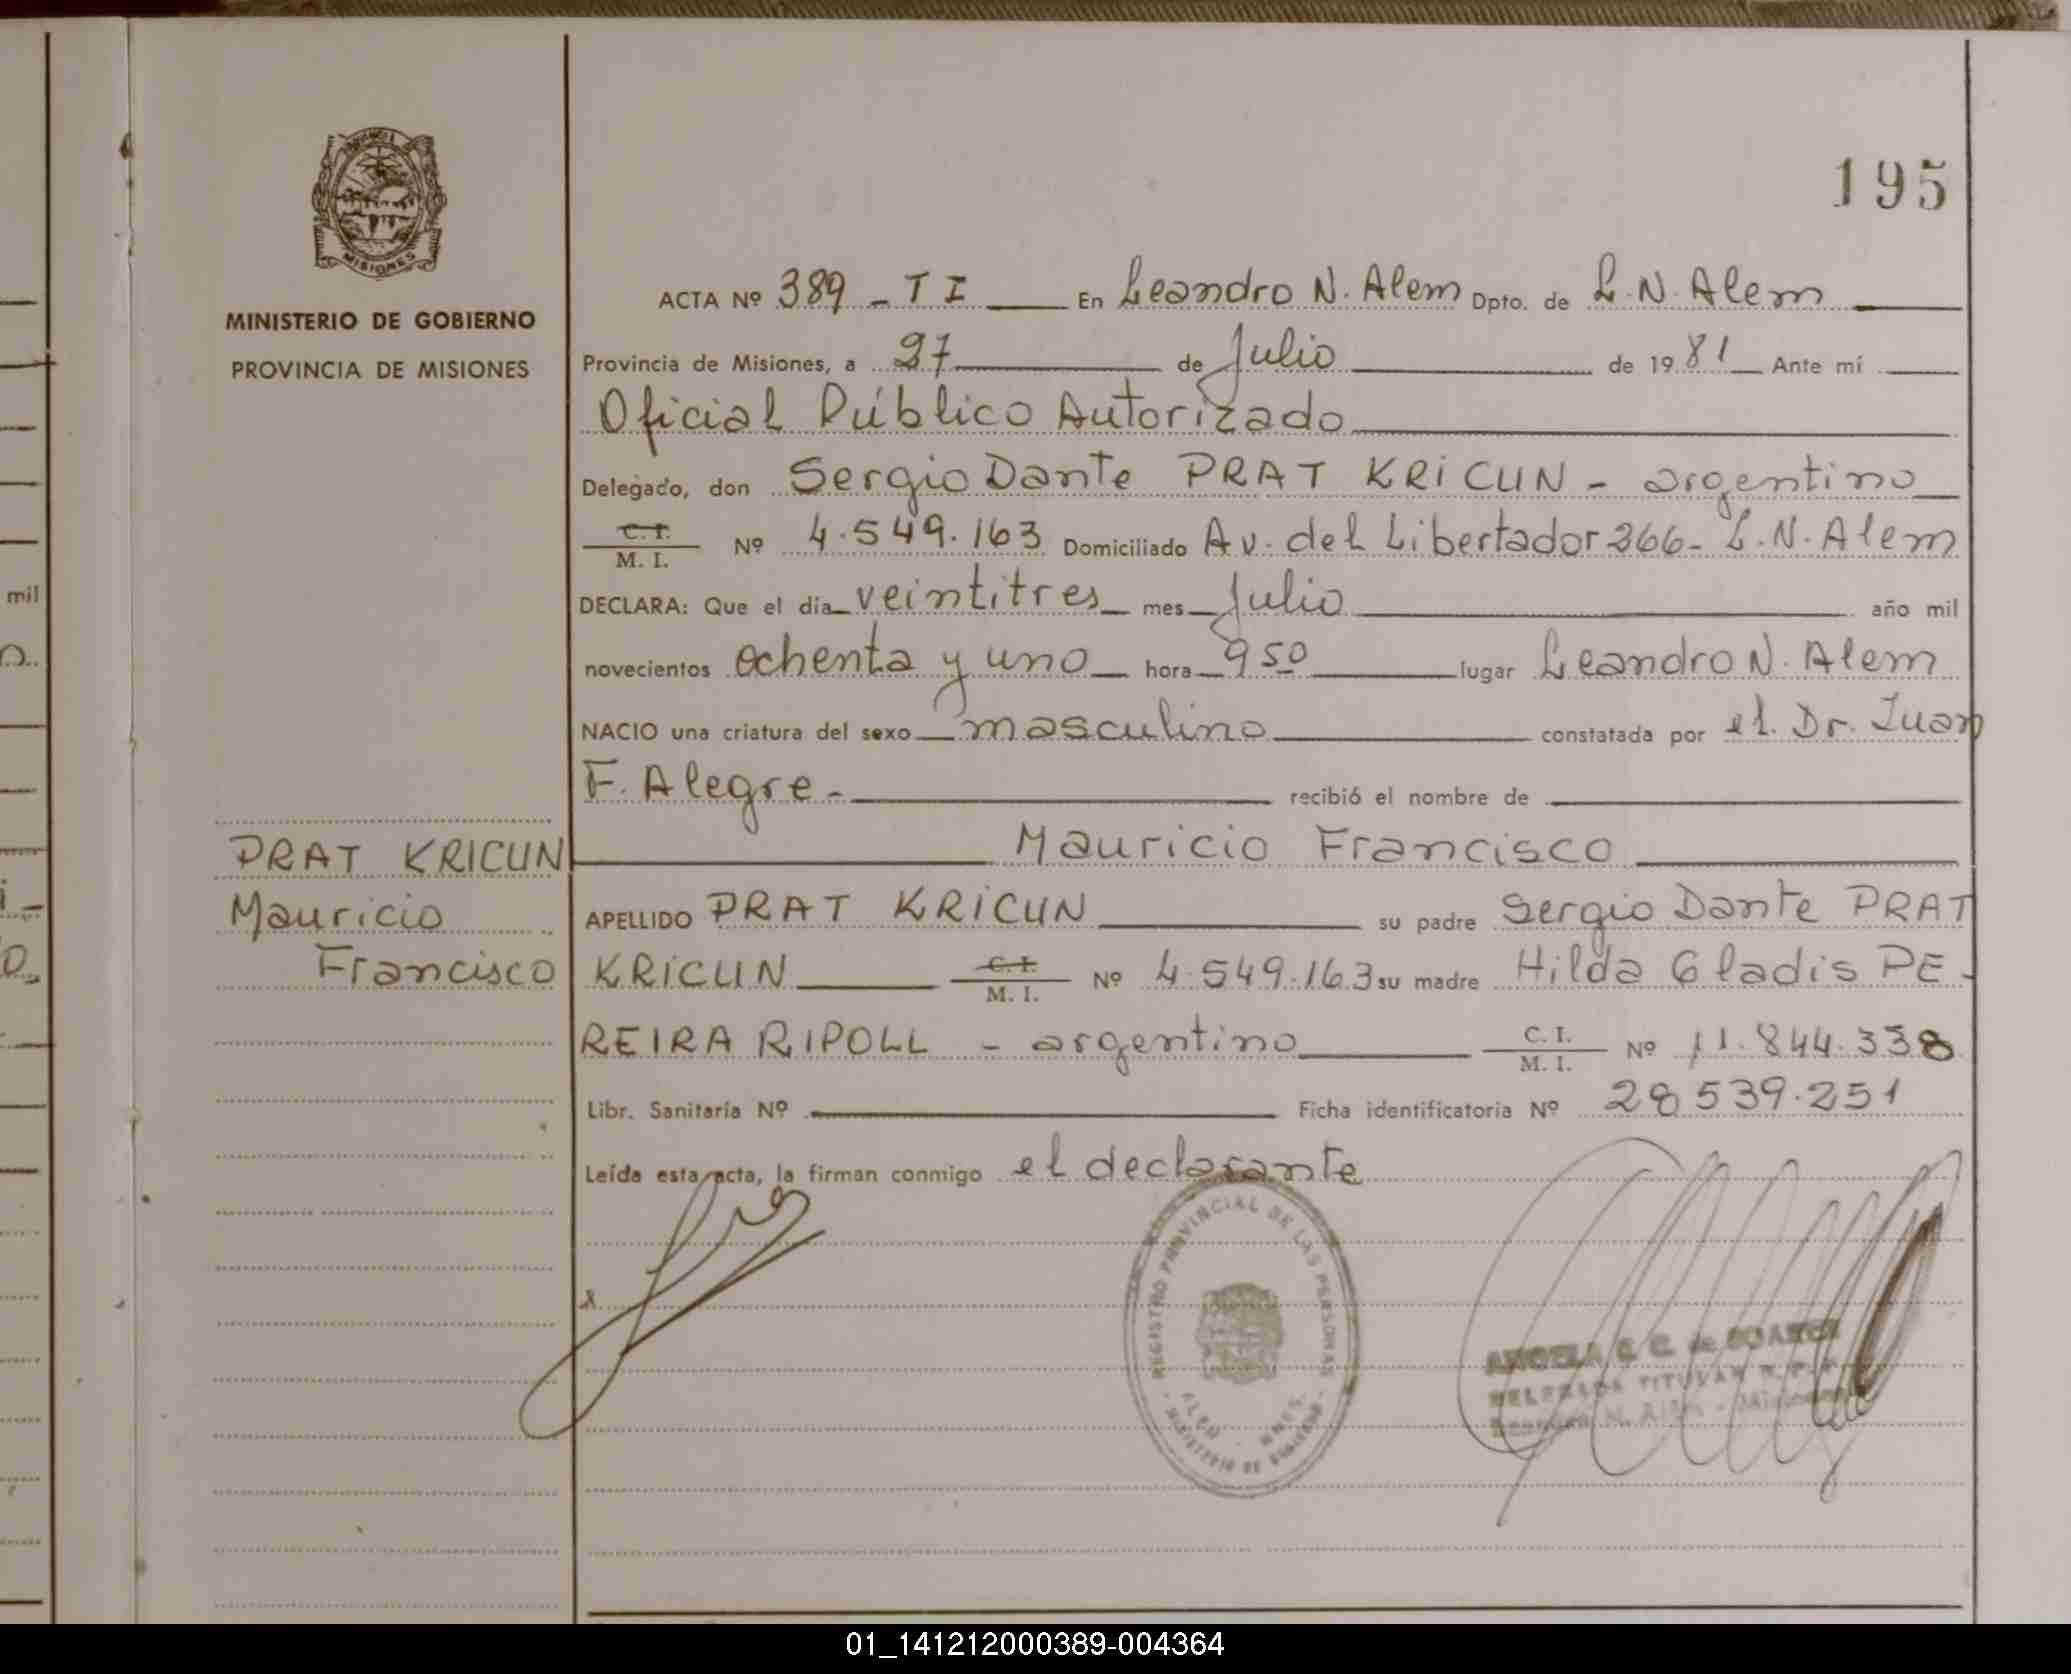 195
MISIONES
MINISTERIO DE GOBIERNO
PROVINCIA DE MISIONES
ACTA Nº 389 - T I En Leandro N. Alem Dpto. de L. N. Alem
Provincia de Misiones, a 27 de Julio de 1981 Ante mí
Oficial Público Autorizado
Delegado, don Sergio Dante PRAT KRICUN - argentino
C. I. / M. I. Nº 4.549.163 Domiciliado Av. del Libertador 266 - L. N. Alem
DECLARA: Que el día veintitres mes Julio año mil
novecientos ochenta y uno hora 9 50 lugar Leandro N. Alem
NACIO una criatura del sexo masculino constatada por el Dr. Juan
F. Alegre - recibió el nombre de
Mauricio Francisco
PRAT KRICUN
Mauricio
Francisco
APELLIDO PRAT KRICUN su padre Sergio Dante PRAT
KRICUN C. I. / M. I. Nº 4.549.163 su madre Hilda Gladis PE-
REIRA RIPOLL - argentino C. I. / M. I. Nº 11.844.338
Libr. Sanitaria Nº Ficha identificatoria Nº 28 539.251
Leída esta acta, la firman conmigo el declarante
REGISTRO PROVINCIAL DE LAS PERSONAS
ALEM - MNES.
MINISTERIO DE GOBIERNO
ANGELA de
DELEGADA TITULAR
Leandro N. Alem - Misiones
mil
01_141212000389-004364